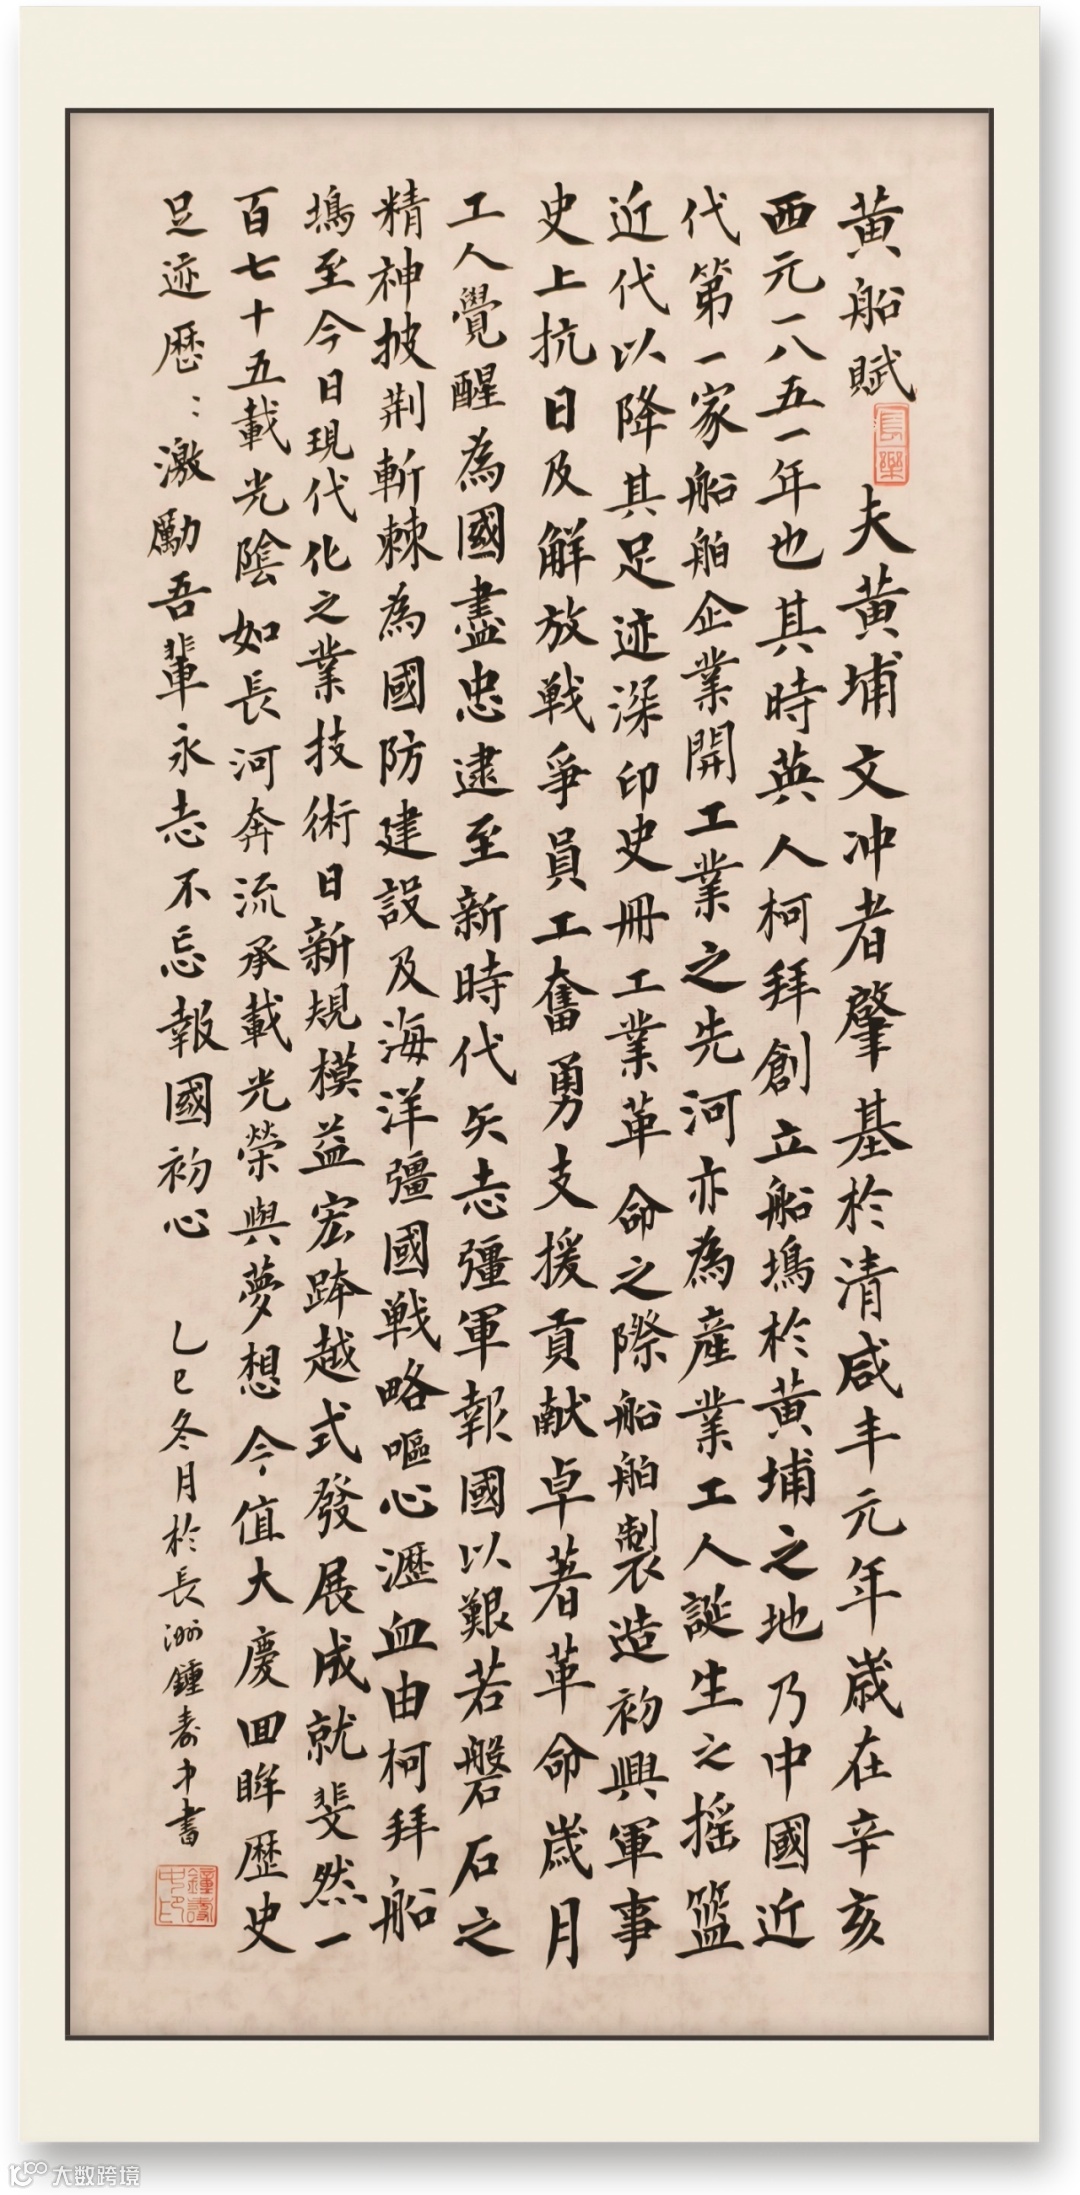 黄船賦 長樂 夫黄埔文冲者肇基於清咸丰元年歲在辛亥
西元一八五一年也其時英人柯拜創立船塢於黄埔之地乃中國近
代第一家船舶企業開工業之先河亦為産業工人誕生之摇籃
近代以降其足迹深印史冊工業革命之際船舶製造初興軍事
史上抗日及解放戦爭員工奮勇支援貢献卓著革命歲月
工人覺醒為國盡忠逮至新時代矢志彊軍報國以艱若磐石之
精神披荆斬棘為國防建設及海洋彊國戦略嘔心瀝血由柯拜船
塢至今日現代化之業技術日新規模益宏跨越式發展成就斐然一
百七十五載光陰如長河奔流承載光榮與夢想今值大慶回眸歷史
足迹歷：激勵吾輩永志不忘報國初心
乙巳冬月於長洲鍾壽中書
鍾壽中印
大数跨境